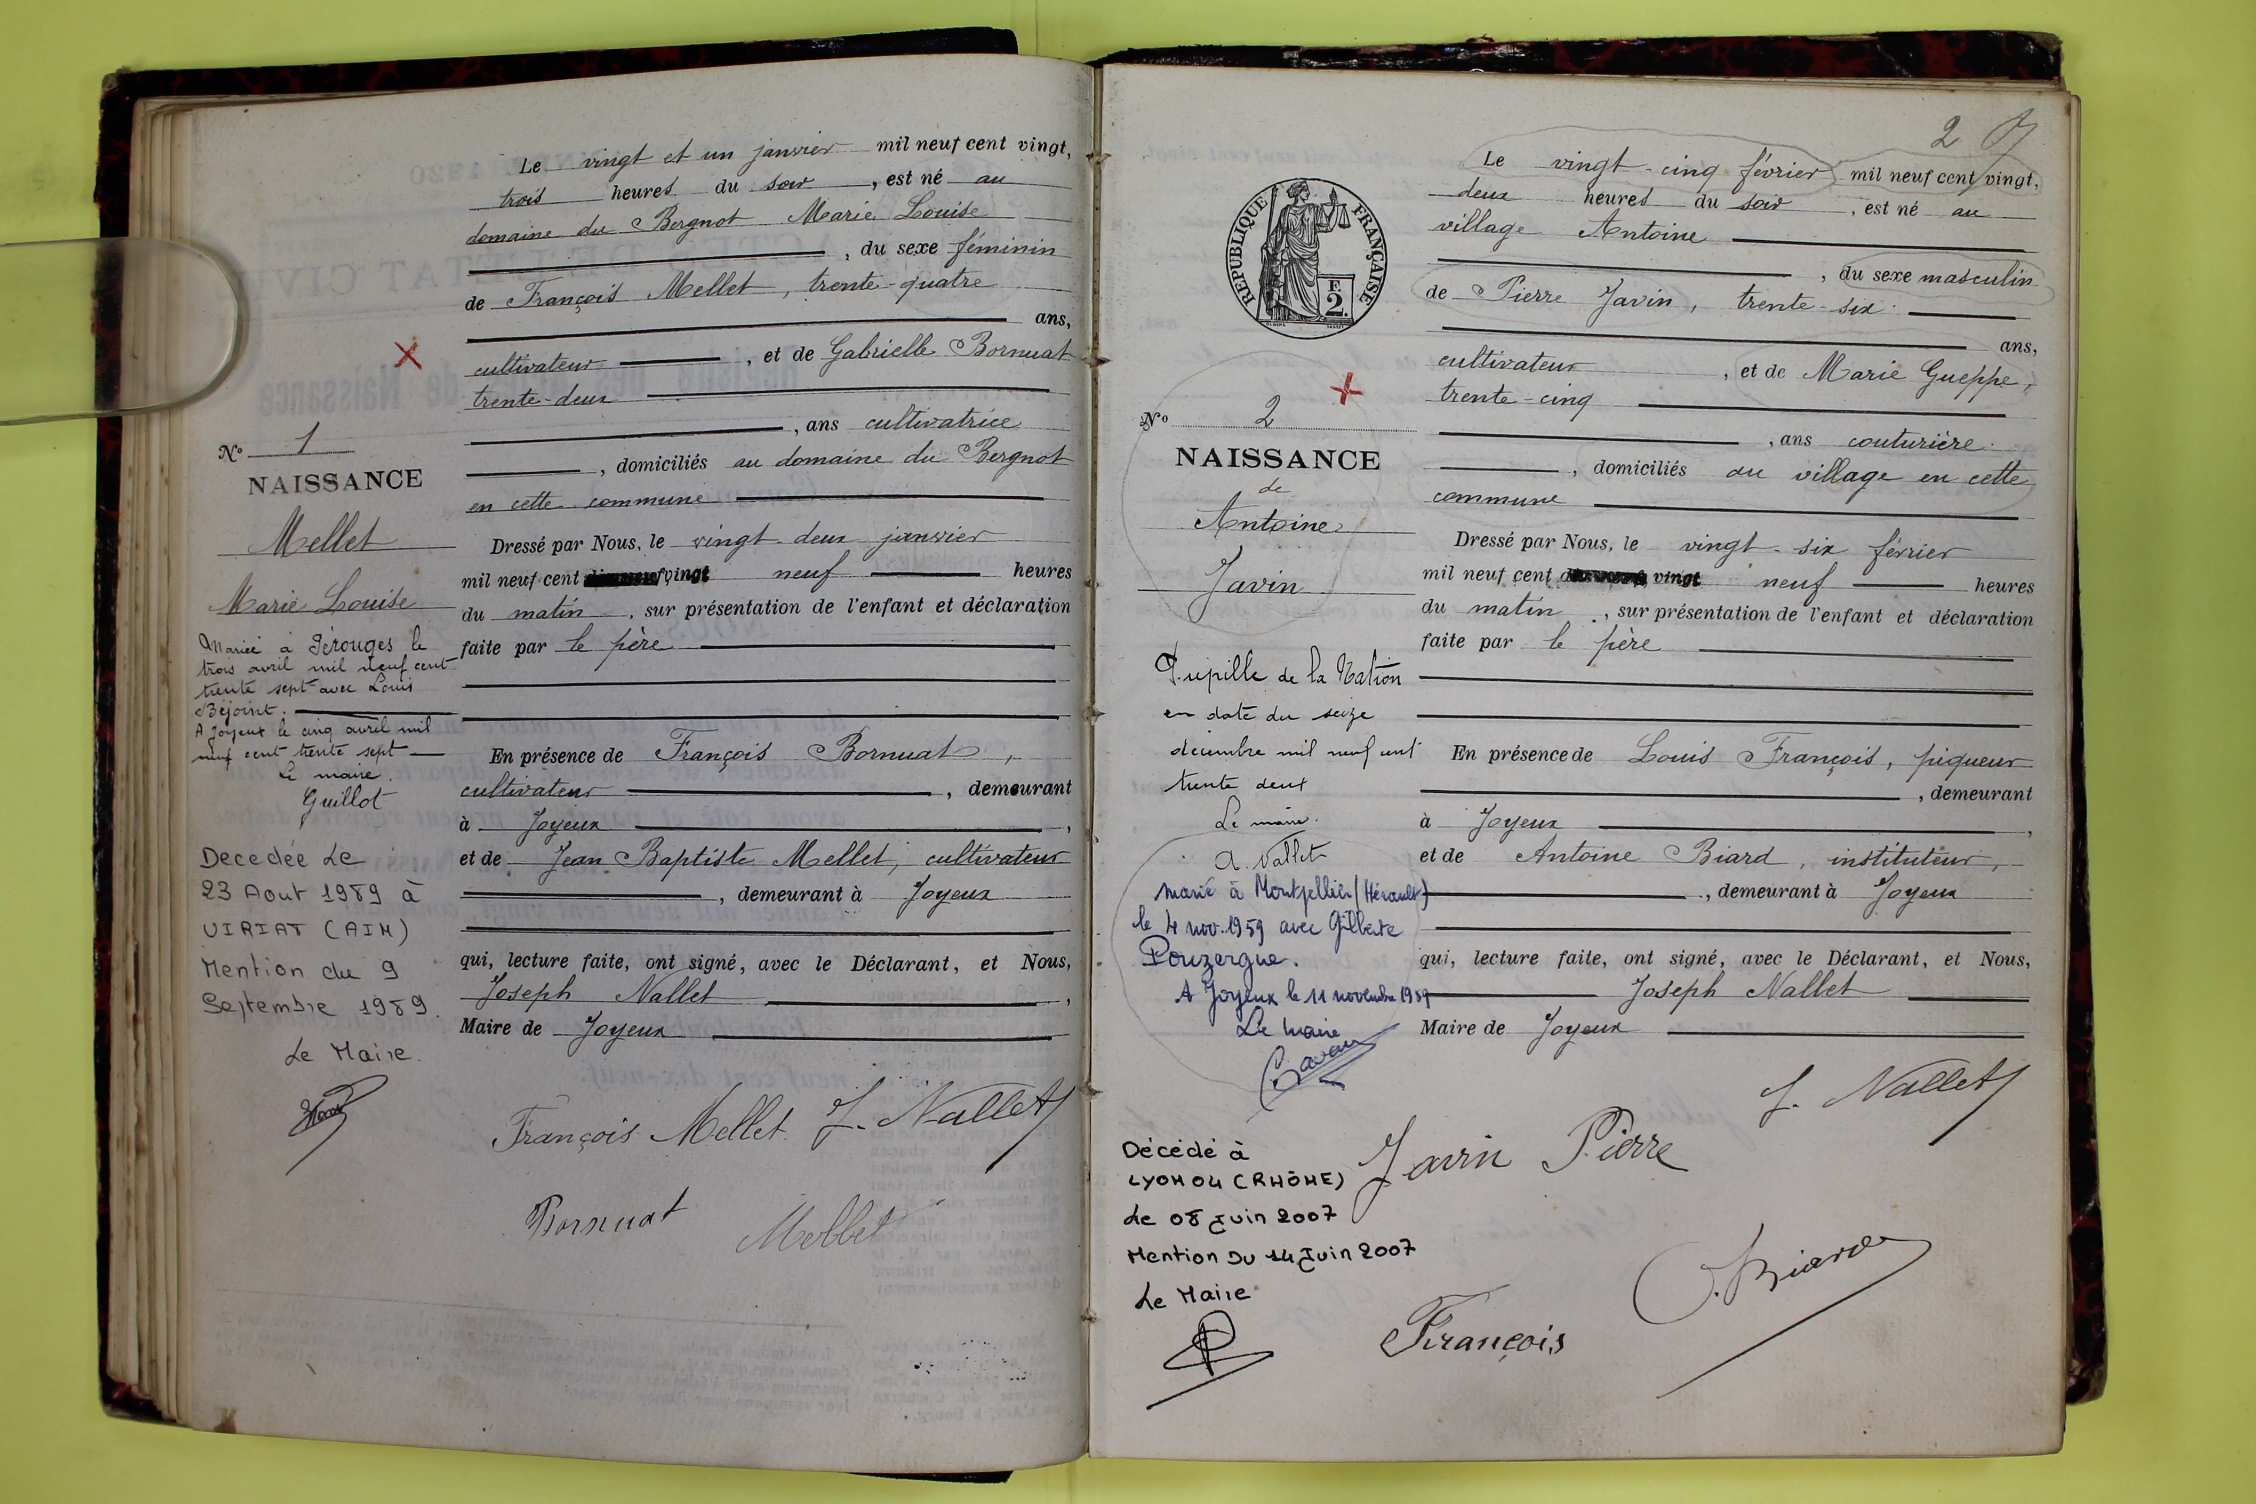 Le vingt et un janvier mil neuf cent vingt,
trois heures du soir, est né au
domaine du Bergnot Marie Louise
, du sexe féminin
de François Mellet, trente-quatre
ans,
cultivateur, et de Gabrielle Bornuat
trente-deux
, ans cultivatrice
, domiciliés au domaine du Bergnot
en cette commune
Dressé par Nous, le vingt deux janvier
mil neuf cent vingt neuf heures
du matin, sur présentation de l'enfant et déclaration
faite par le père
En présence de François Bornuat,
cultivateur, demeurant
à Joyeux,
et de Jean Baptiste Mellet, cultivateur
, demeurant à Joyeux
qui, lecture faite, ont signé, avec le Déclarant, et Nous,
Joseph Nallet,
Maire de Joyeux
François Mellet J. Nallet
Bornuat Mellet
No 1
NAISSANCE
Mellet
Marie Louise
Mariée à Pérouges le
trois avril mil neuf cent
trente sept avec Louis
Béjoint.
A Joyeux le cinq avril mil
neuf cent trente sept
Le maire.
Guillot
Decedée Le
23 Aout 1989 à
VIRIAT (AIN)
Mention du 9
Septembre 1989.
Le Maire.
2
Le vingt-cinq février mil neuf cent vingt,
deux heures du soir, est né au
village Antoine
, du sexe masculin
de Pierre Javin, trente-six
ans,
cultivateur, et de Marie Gueppe,
trente-cinq
, ans couturière
, domiciliés au village en cette
commune
Dressé par Nous, le vingt-six février
mil neuf cent vingt neuf heures
du matin, sur présentation de l'enfant et déclaration
faite par le père
En présence de Louis François, piqueur
, demeurant
à Joyeux,
et de Antoine Biard, instituteur,
, demeurant à Joyeux
qui, lecture faite, ont signé, avec le Déclarant, et Nous,
Joseph Nallet
Maire de Joyeux
J. Nallet
Javin Pierre
A. Biard
François
RÉPUBLIQUE FRANÇAISE
F.
2.
No 2
NAISSANCE
de
Antoine
Javin
Pupille de la Nation
en date du seize
décembre mil neuf cent
trente deux
Le maire.
A. Vallet
Marié à Montpellier (Hérault)
le 4 nov. 1959 avec Gilberte
Pouzergue.
A Joyeux le 11 novembre 1959
Le maire
Décédé à
LYON 04 (RHÔNE)
Le 08 Juin 2007
Mention Du 14 Juin 2007
Le Maire